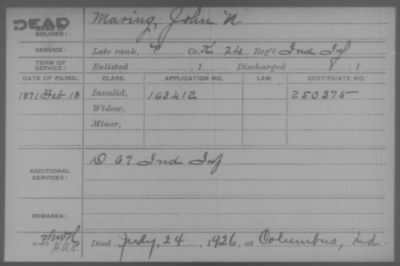 DEAD
SOLDIER: Maring, John N
SERVICE: Late rank, P Co. K 24 Reg't Ind Inf
TERM OF SERVICE: Enlisted , 1 Discharged , 1
DATE OF FILING. CLASS. APPLICATION NO. LAW. CERTIFICATE NO.
1871 Feb 18 Invalid, 163412 250375
Widow,
Minor,
ADDITIONAL SERVICES: D 67 Ind Inf
REMARKS:
Died July, 24, 1926, at Columbus, Ind.